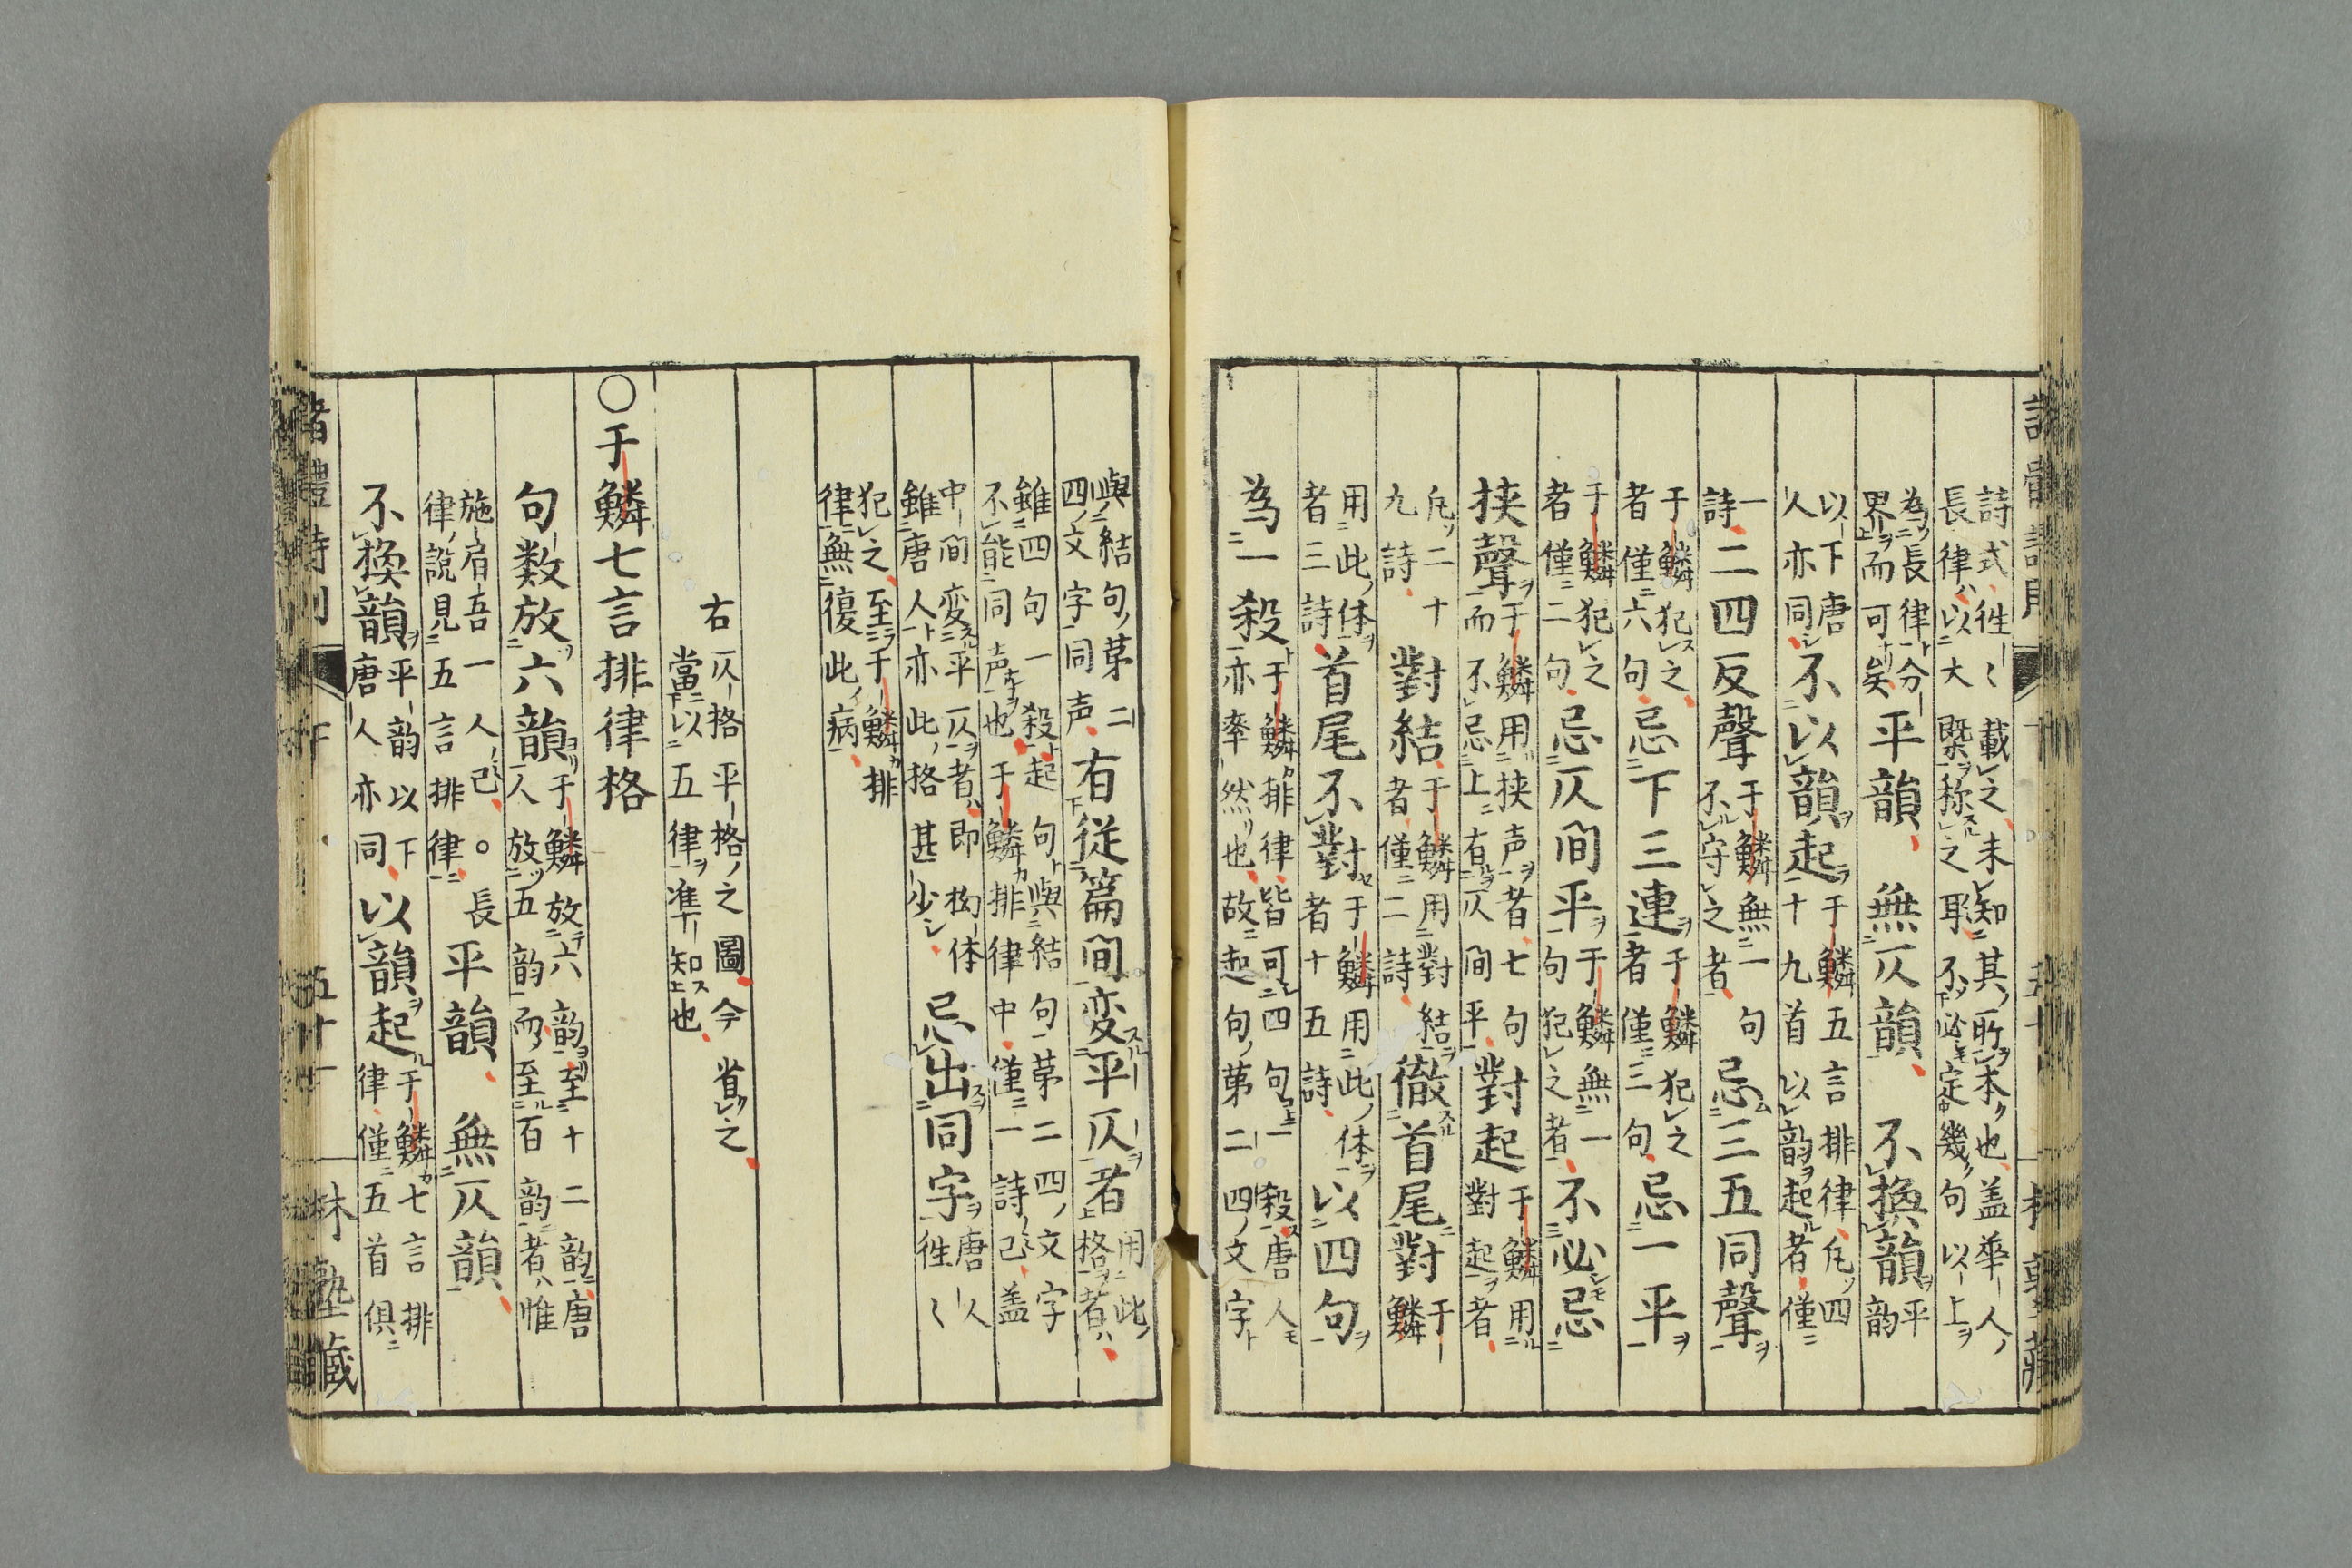 詩式徃〻載之未知其所本也盖華人
長律以大槩称之耳不必定幾句以上
為長律分
界而可矣平韻　無仄韻　不換韻平韵
以下唐
人亦同不以韻起于鱗五言排律凡四十九首以韵起者僅
一詩二四反聲于鱗無一句不守之者忌三五同聲
于鱗犯之者僅六句忌下三連于鱗犯之者僅三句忌一平
于鱗犯之者僅二句忌仄間平于鱗無一句犯之者不必忌
挾聲于鱗用挾声者七句而不忌上有仄間平對起于鱗用對起者
凡二十九詩對結于鱗用對結者僅二詩徹首尾對于鱗
用此体者三詩首尾不對于鱗用此体者十五詩以四句
為一殺于鱗排律皆可四句一殺唐人亦率然也故起句第二四文字
與結句第二四文字同声有從篇間変平仄者用此格者
雖四句一殺起句與結句第二四文字不能同声也于鱗排律中僅一詩已盖
中間変平仄者即拗体雖唐人亦此格甚少忌出同字唐人徃〻
犯之至于鱗排律無復此病
右仄格平格之圖今省之
當以五律準知也
〇于鱗七言排律格
句数放六韻于鱗放六韵至十二韵唐人放五韵而至百韵者惟
施肩吾一人已。長律說見五言排律平韻　無仄韻
不換韻平韵以下唐人亦同以韻起于鱗七言排律僅五首俱
諸體詩則
下
五十一
林塾藏